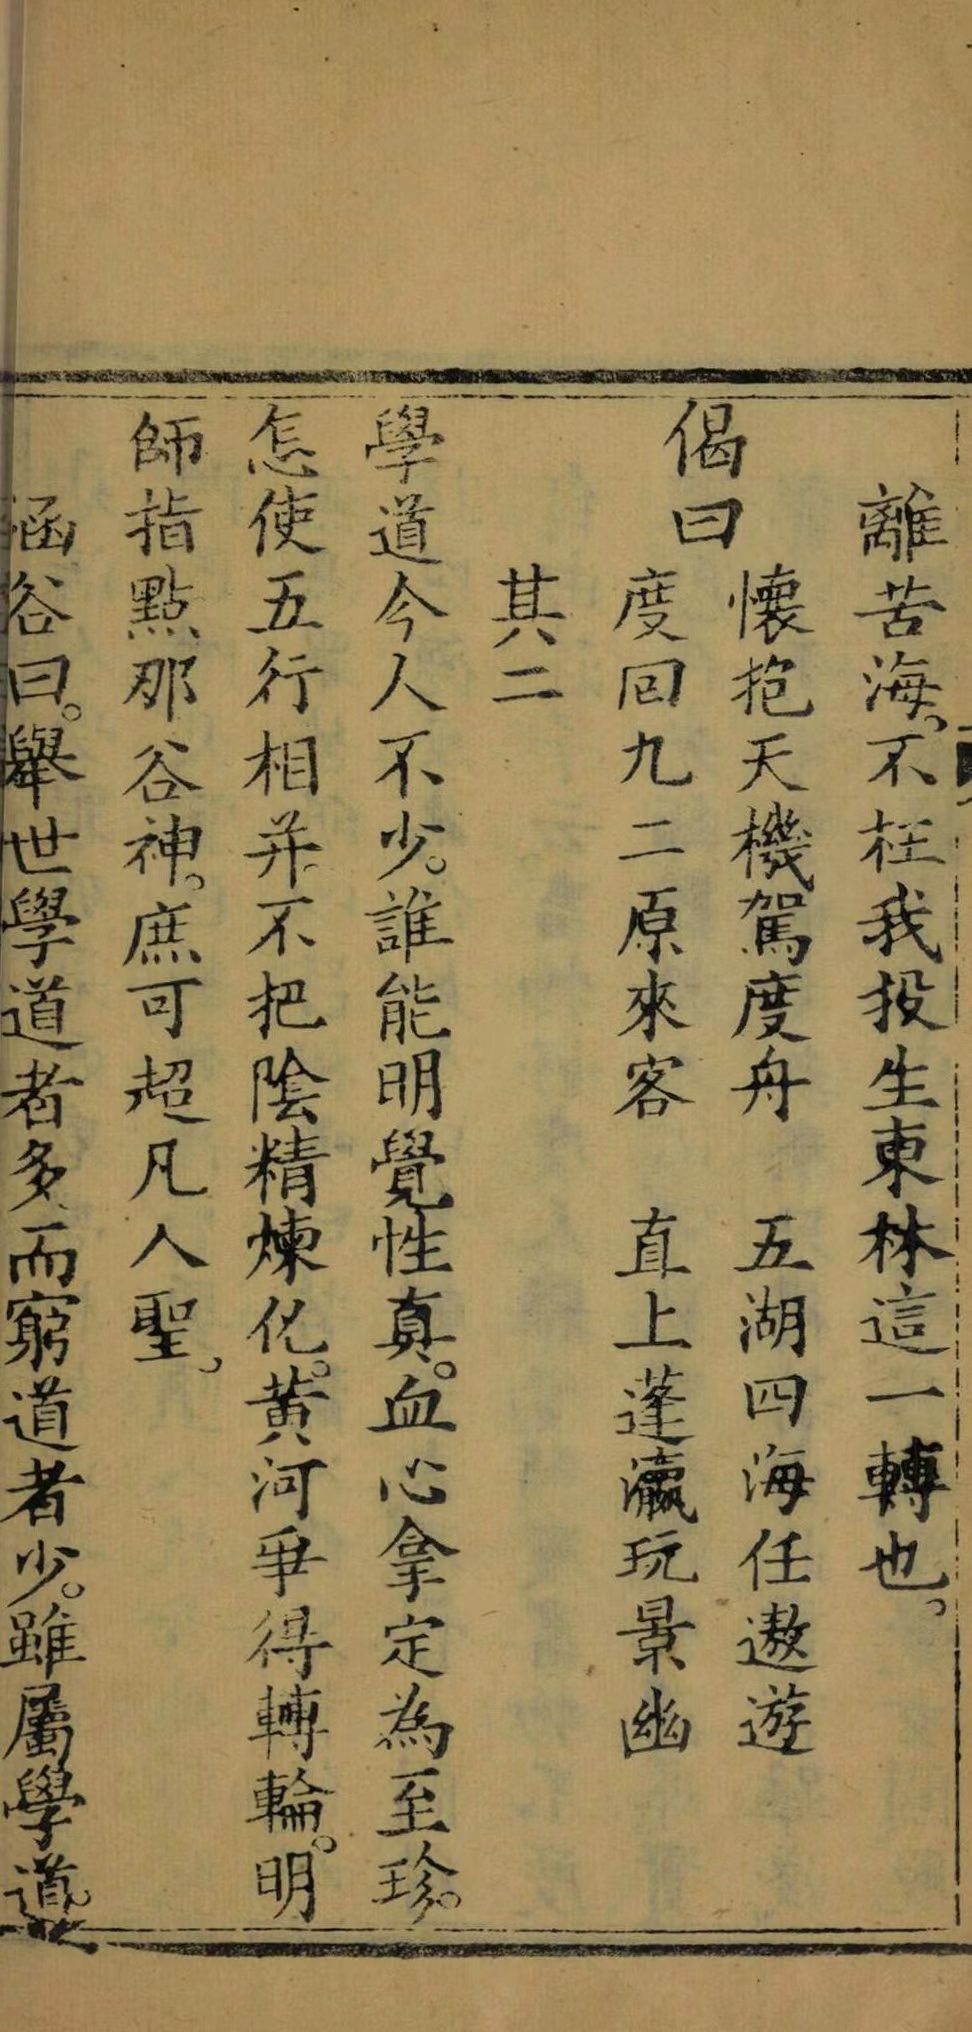 離苦海不枉我投生東林這一轉也。
懷抱天機駕度舟　五湖四海任遨遊
偈曰
度回九二原來客　直上蓬瀛玩景幽
其二
學道今人不少。誰能明覺性真。血心拿定為至珍。
怎使五行相并不把陰精煉化。黃河爭得轉輪。明
師指點那谷神。庶可超凡人聖。
涵谷曰。舉世學道者多而窮道者少。雖屬學道